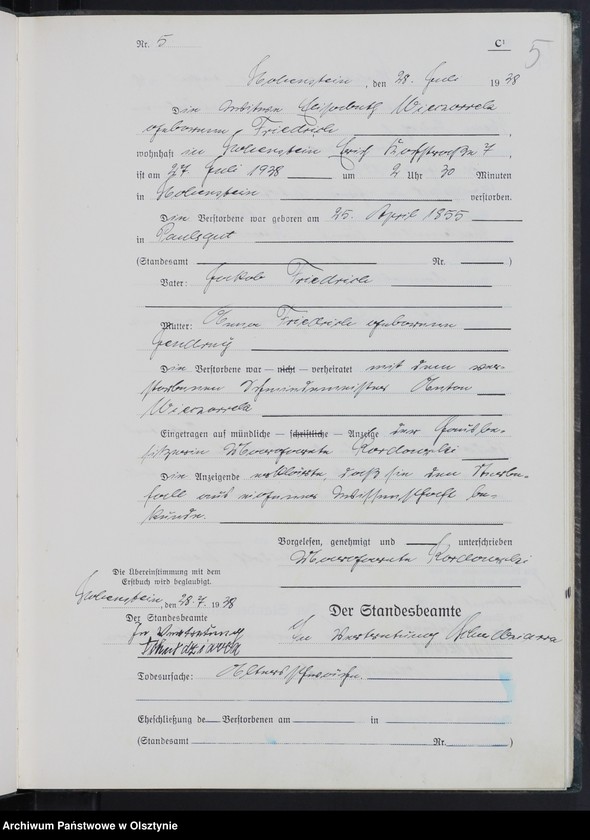 Nr. 5. C 5
Hohenstein, den 28. Juli 1938
Die Witwe Elisabeth Wieczorrek
geborene Friedrich,
wohnhaft in Hohenstein Erich Kochstraße 7,
ist am 27. Juli 1938 um 2 Uhr 30 Minuten
in Hohenstein verstorben.
Die Verstorbene war geboren am 25. April 1855
in Paulsgut
(Standesamt Nr. )
Vater: Jakob Friedrich
Mutter: Anna Friedrich geborene
Jendrny
Die Verstorbene war — nicht — verheiratet mit dem ver-
storbenen Schmiedemeister Anton
Wieczorrek
Eingetragen auf mündliche — schriftliche — Anzeige der Hausbe-
sitzerin Margarete Kordowski
Die Anzeigende erklärte, daß sie den Sterbe-
fall aus eigener Wissenschaft be-
kunde.
Vorgelesen, genehmigt und unterschrieben
Margarete Kordowski
Die Übereinstimmung mit dem
Erstbuch wird beglaubigt.
Hohenstein, den 28.7. 1938
Der Standesbeamte
In Vertretung
Der Standesbeamte
In Vertretung
Todesursache: Altersschwäche.
Eheschließung de Verstorbenen am in
(Standesamt Nr. )
Archiwum Państwowe w Olsztynie